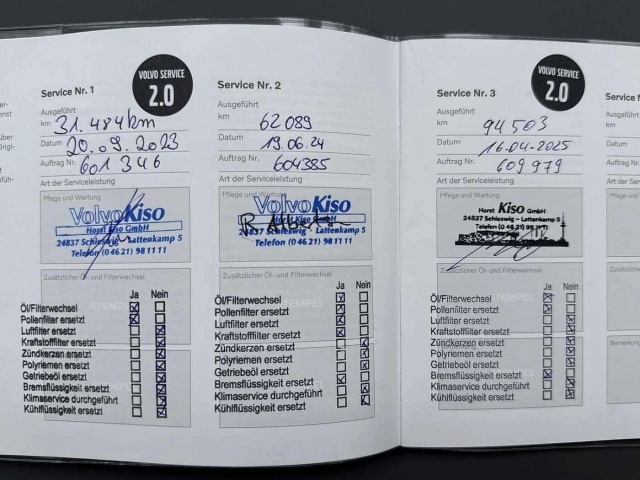 Service Nr. 1
VOLVO SERVICE
2.0
Ausgeführt
km 31.484km
Datum 20.09.2023
Auftrag Nr. 601346
Art der Serviceleistung
Pflege und Wartung
VolvoKiso
Horst Kiso GmbH
24837 Schleswig - Lattenkamp 5
Telefon (0 46 21) 98 11 11
Zusätzlicher Öl- und Filterwechsel
STEMPEL
Ja Nein
Öl/Filterwechsel
Pollenfilter ersetzt
Luftfilter ersetzt
Kraftstofffilter ersetzt
Zündkerzen ersetzt
Polyriemen ersetzt
Getriebeöl ersetzt
Bremsflüssigkeit ersetzt
Klimaservice durchgeführt
Kühlflüssigkeit ersetzt
Service Nr. 2
Ausgeführt
km 62089
Datum 19.06.24
Auftrag Nr. 604385
Art der Serviceleistung
Pflege und Wartung
VolvoKiso
Horst Kiso GmbH
24837 Schleswig - Lattenkamp 5
Telefon (0 46 21) 98 11 11
Zusätzlicher Öl- und Filterwechsel
STEMPEL
Ja Nein
Öl/Filterwechsel
Pollenfilter ersetzt
Luftfilter ersetzt
Kraftstofffilter ersetzt
Zündkerzen ersetzt
Polyriemen ersetzt
Getriebeöl ersetzt
Bremsflüssigkeit ersetzt
Klimaservice durchgeführt
Kühlflüssigkeit ersetzt
Service Nr. 3
VOLVO SERVICE
2.0
Ausgeführt
km 94503
Datum 16.04.2025
Auftrag Nr. 609979
Art der Serviceleistung
Pflege und Wartung
Horst Kiso GmbH
24837 Schleswig - Lattenkamp 5
Telefon (0 46 21) 98 11 11
Zusätzlicher Öl- und Filterwechsel
Ja Nein
Öl/Filterwechsel
Pollenfilter ersetzt
Luftfilter ersetzt
Kraftstofffilter ersetzt
Zündkerzen ersetzt
Polyriemen ersetzt
Getriebeöl ersetzt
Bremsflüssigkeit ersetzt
Klimaservice durchgeführt
Kühlflüssigkeit ersetzt
Service N
Ausgeführt
km
Datum
Auftrag Nr.
Art der Serv